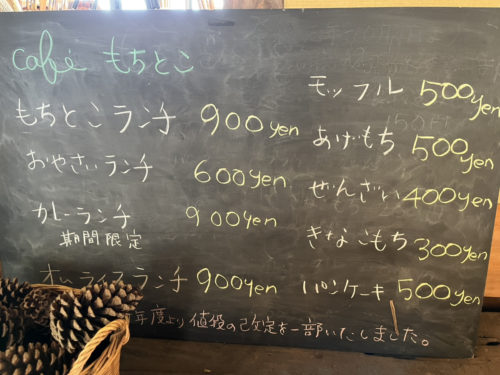 café もちとこ
もちとこランチ 900yen
おやさいランチ 600yen
カレーランチ 900yen
期間限定
オムライスランチ 900yen
モッフル 500yen
あげもち 500yen
ぜんざい 400yen
きなこもち 300yen
パンケーキ 500yen
年度より値段の改定を一部いたしました。